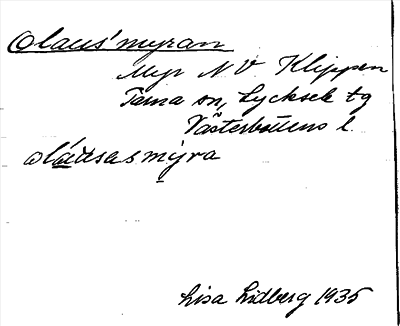 Olaus'myran
Myr N V Klippen
Tärna sn, Lycksele tg
Västerbottens l.
oláusasmýra
Lisa Lidberg 1935